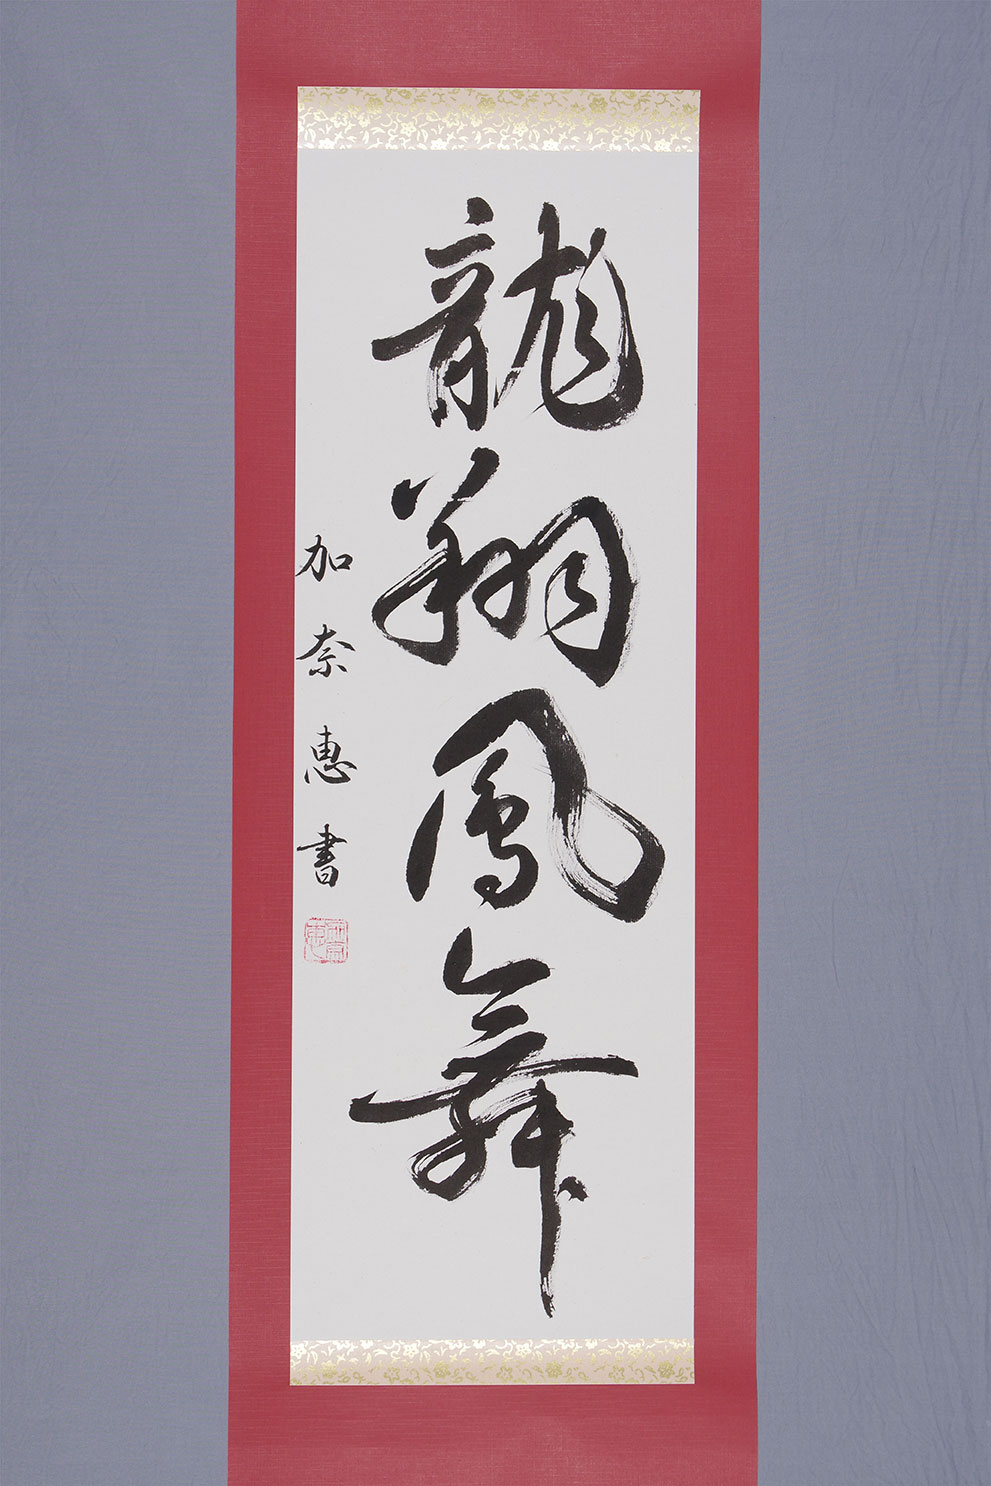 龍翔鳳舞
加奈恵書